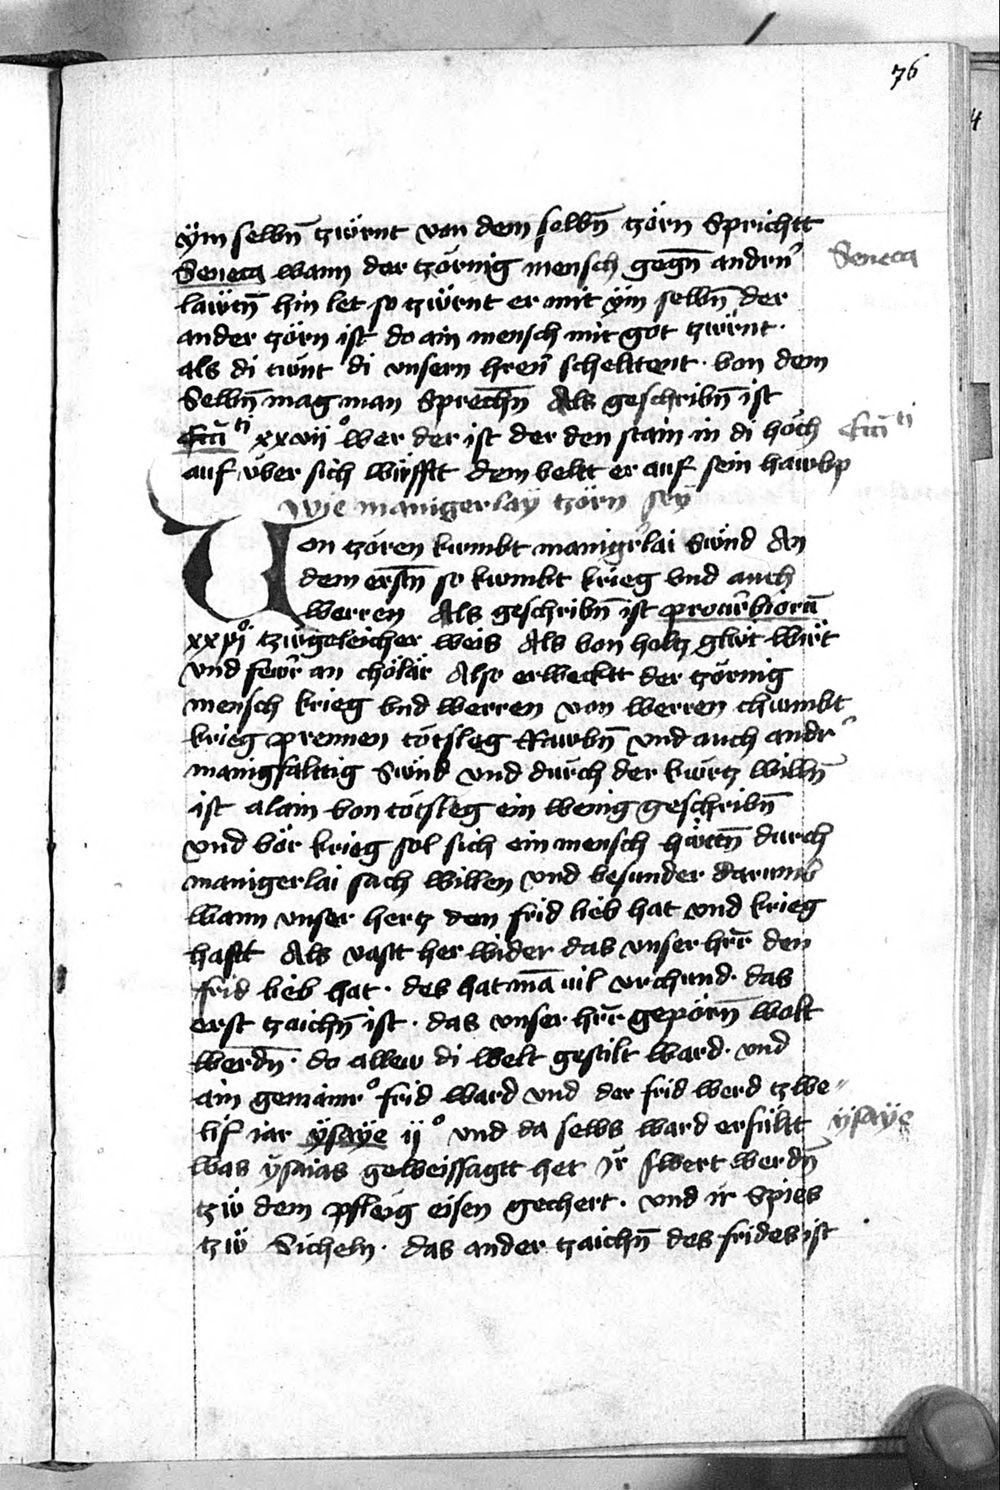 76
ÿm selbn̄ tzẅrnt von dem selbn̄ tzörn Sprichtt
Seneca wann der tzörnig mensch gegn̄ andrn̉ Seneca
läwtn̄ hin let so tzẅrnt er mit ÿm selbn̄ der
ander tzörn ist do ain mensch mit got tzẅrnt ·
als di tẅnt di vnsern hren̄ scheltent · von dem
Selbn̄ mag man Sprechn̄ Als geschribn̄ ist
Eccͥ xxvijͦ wer der ist der den stain in di höch Eccͥ
auf v̈ber sich wv̈rfft dem velt er auf sein hawbp
Wie manigerlay tzörn seÿ
Uon tzören kwmbt manigr̉lai Sẅnd An
dem erstn̄ so kwmbt krieg vnd auch
werren Als geschribn̄ ist prouerbiorū
xxvjͦ tzẅgeleicher weis Als von holtz glẅt wirt
vnd fewr̉ an chölär Also erwecktt der tzörnig
mensch krieg vnd werren von werren chwmbt
krieg prennen tötsleg Rawbn̄ vnd auch andr̉
manigfalttig Sẅnd vnd dürch der kv̈rtz willn̄
ist alain von tötsleg ein wenig geschribn̄
vnd vör krieg sol sich ein mensch hv̈ttn̄ durch
manigerlai sach willen vnd besunder darumb
wann vnser hertz den frid lieb hat vnd krieg
hastt Als vastt her wider das vnser hr̄r den
frid lieb hat · des hat mā vil vrchund · das
erst tzaichn̄ ist · das vnser hr̄r gepörn̄ wolt
werdn̄ · do allew di welt gestilt ward · vnd
ain gemainr̉ frid ward vnd der frid werd tzwe=
lif iar ÿsaÿe ijͦ vnd da selbs ward erfültt ÿsaÿe
was ÿsaias geweissagtt het Ir̉ swert werdn̄
tzẅ dem pflẅg eisen gechert · vnd ir Spies
tzẅ Sicheln · das ander tzaichn̄ des frides ist